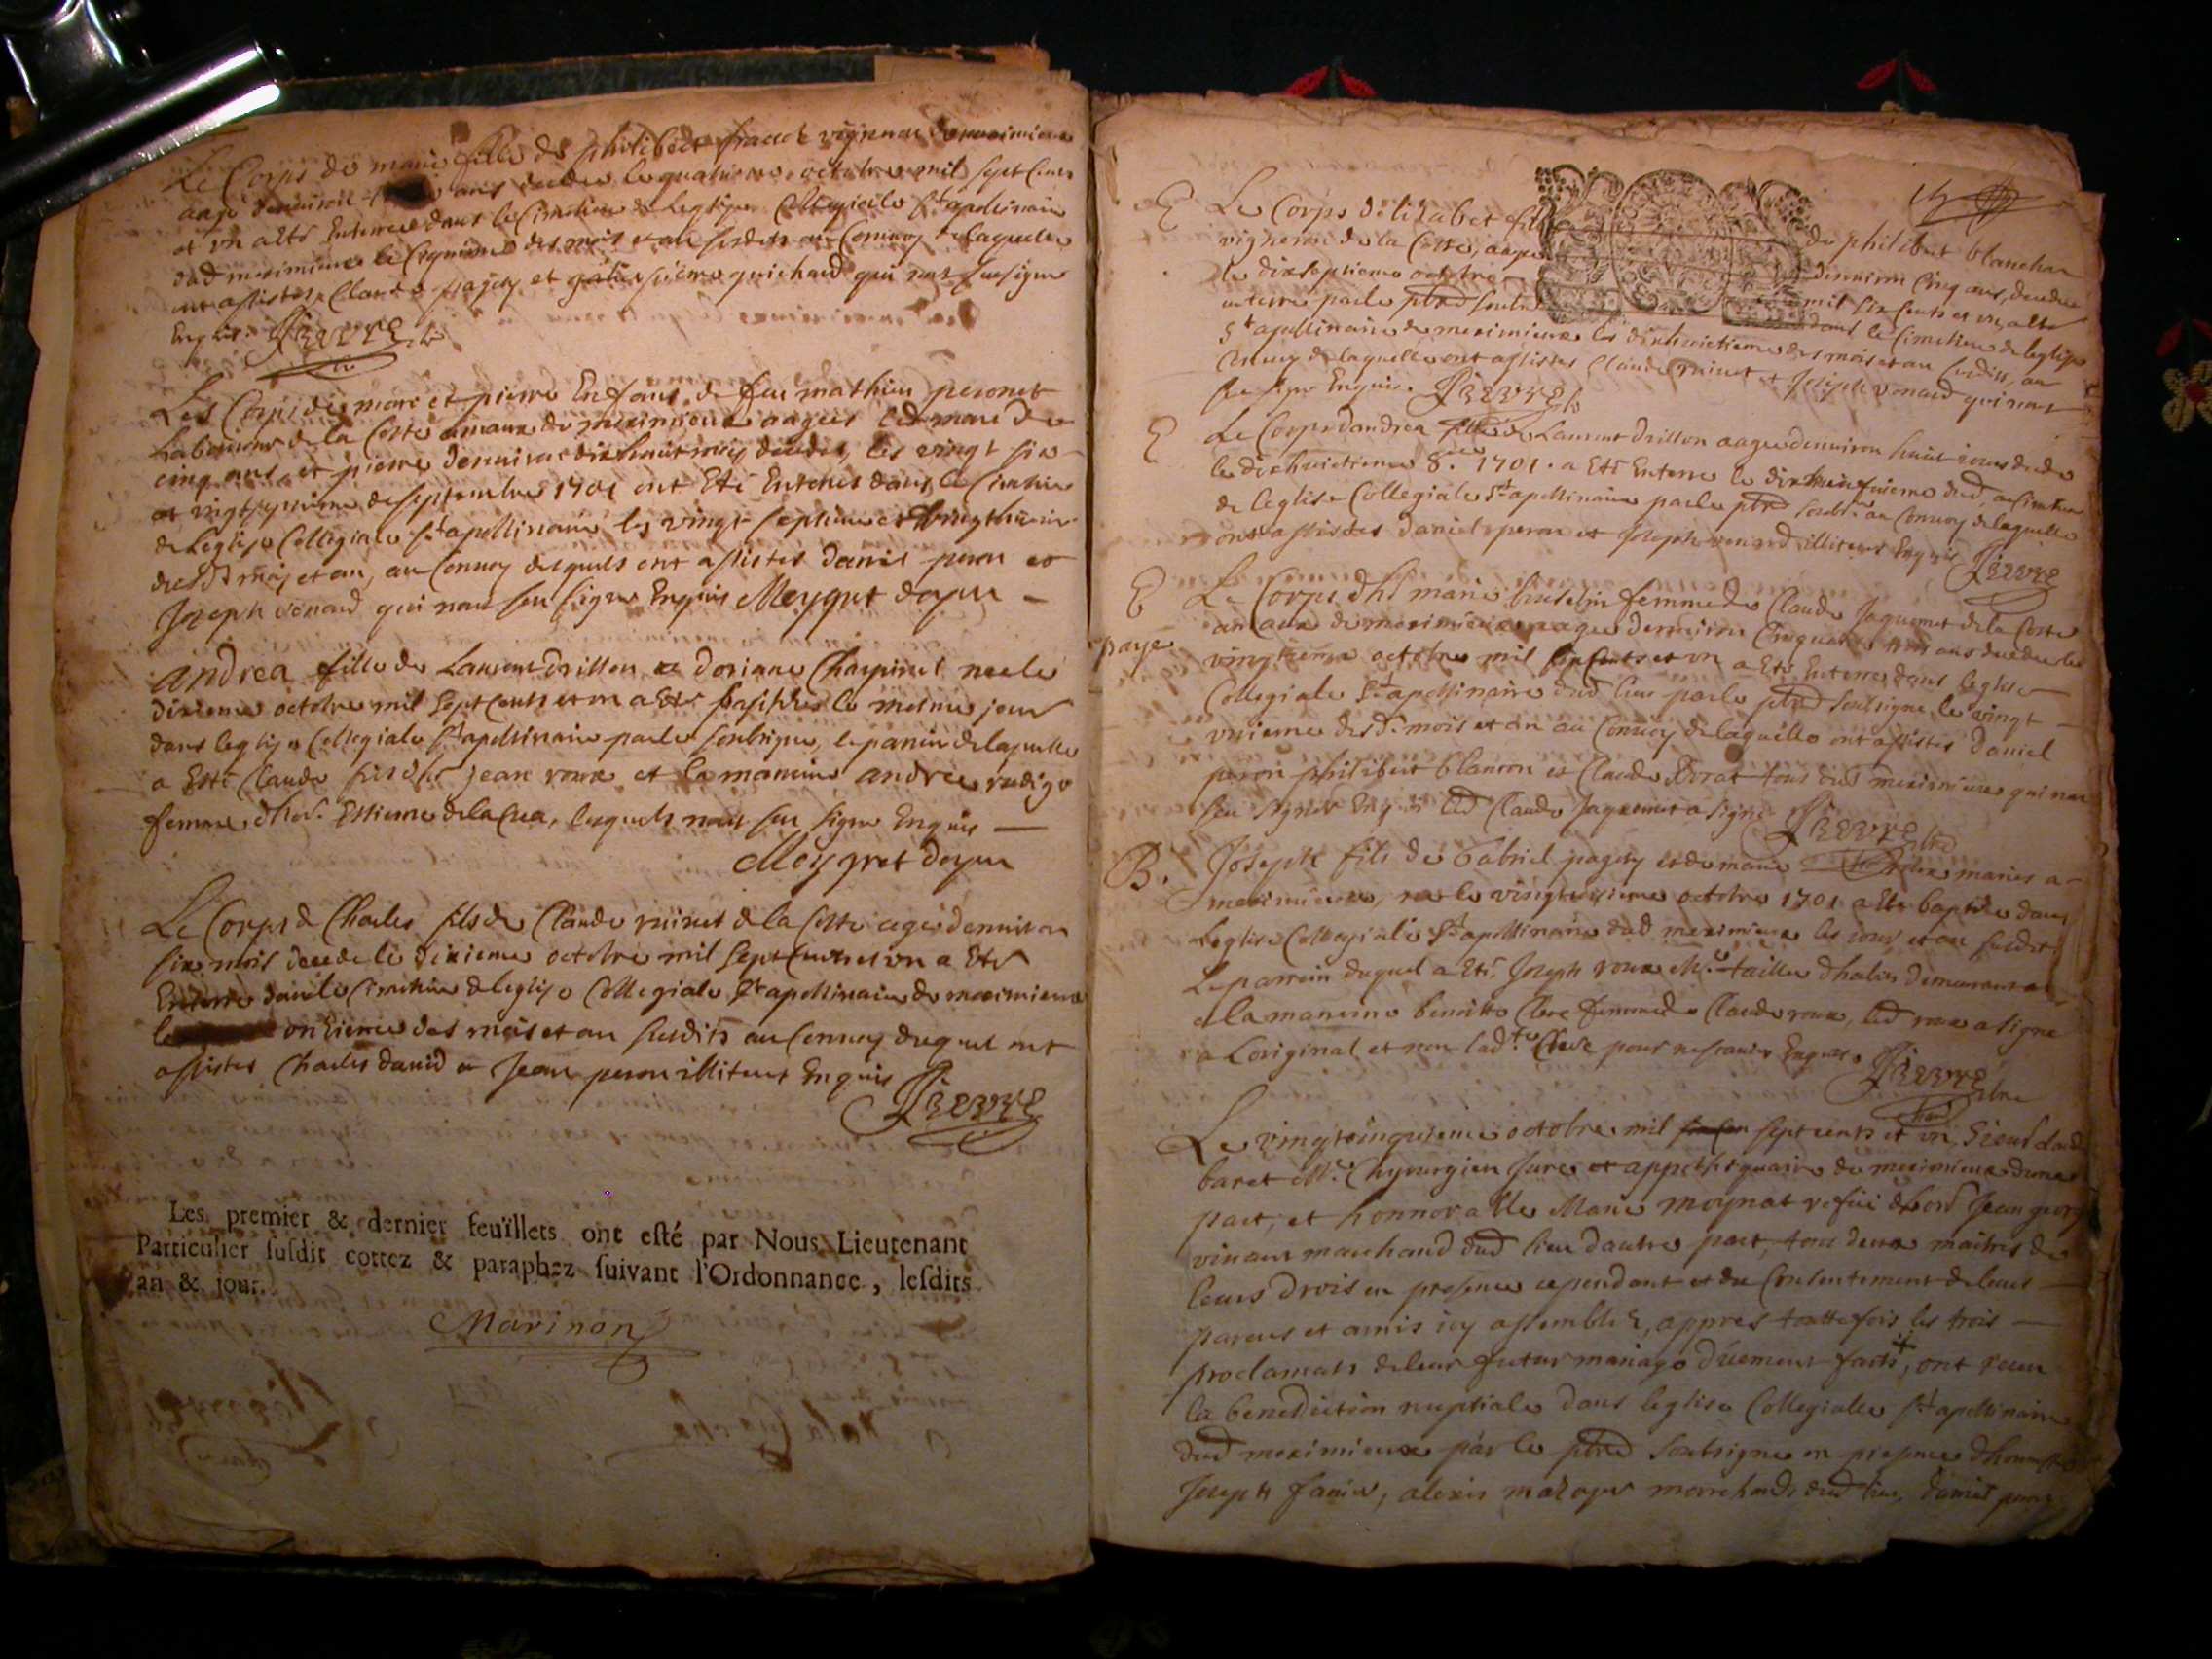 Le Corps de marie fille de philibert vigneron de meximieux
aage denuiron ans decedee le quatrieme octobre mil sept cents
et vn a esté Enterree dans le Cimetiere de Leglise Collegiale St apollinaire
dud meximieux le Cinquieme des mois et an susdits au Conuoy de laquelle
ont assistes Claude pagey et pierre guichard qui nont sceu signer
Enquis.
Les Corps de marie et pierre Enfans de feu mathieu peronet
Laboureur de la Coste amaux de meximieux aagées lad marie de
cinq ans et pierre denuiron dixhuit mois decedes les vingt six
et vingtseptieme de septembre 1701 ont Eté Enterrés dans le Cimetiere
de Leglise Collegiale St apollinaire les vingt septieme et vingthuitieme
desd mois et an, au Conuoy desquels ont assistes Daniel peron et
Joseph venard qui nont sceu signer Enquis Meygret doyen
andrea fille de Laurent drillon et doriane Charpinel nee le
dixieme octobre mil sept cents et vn a Eté baptisee le mesme jour
dans leglise Collegiale St apollinaire par le soubsigné, le parrin de laquelle
a Esté Claude fils de jean roux et la marrine andrea rudigo
femme dhon. Estienne delacua, lesquels nont sceu signer Enquis
Meygret doyen
Le Corps de Charles fils de Claude ruinet de la Coste agé denuiron
six mois decede le dixieme octobre mil sept cents et vn a Eté
Enterré dans le Cimetiere de leglise Collegiale St apollinaire de meximieux
le onzieme des mois et an susdits au Conuoy duquel ont
assistes Charles dauid et Jean peron illiteres Enquis
Les premier & dernier feüillets ont esté par Nous Lieutenant
Particulier susdit cottez & paraphez suivant l'Ordonnance, lesdits
an & jour.
Marinon
E Le Corps delizabet fille de philibert blanchon
vigneron de la Coste, aagee denuiron Cinq ans, decedee
le dixseptieme octobre mil six cents et vn, a esté
enterré par le pbre soubs dans le Cimetiere de leglise
St apollinaire de meximieux les dixhuictieme des mois et an susdits, au
Conuoy de laquelle ont assistes Claude ruinet et Joseph venard qui nont
sceu signer Enquis.
E Le Corps dandrea fille de Laurent drillon aagee denuiron huit jours decedee
le dixhuictieme 8.bre 1701. a Eté Enterré le dixneufuieme dud, au Cimetiere
de leglise Collegiale St apollinaire par le pbre soubs. au Conuoy de laquelle
ont assistes daniel peron et Joseph venard illiteres Enquis
E Le Corps dh. marie femme de Claude Jaquemet de la Coste
paye amaux de meximieux aagee denuiron Cinquante ans decedee le
vingtieme octobre mil six cents et vn a Eté Enterree dans leglise
Collegiale St apollinaire dud lieu par le pbre soubsigné le vingt
vnieme desd. mois et an au Conuoy de laquelle ont assistes daniel
peron philibert blancon et Claude tous dud meximieux qui nont
sceu signer Enquis led Claude Jaquemet a signé
B. Joseph fils de Gabriel pagey et de marie maries a
meximieux, né le octobre 1701 a Eté baptisé dans
Leglise Collegiale St apollinaire dud meximieux les jour et an susdit
Le parrein duquel a Eté Joseph roux Me tailleur dhabis demeurant
et la marrine benoitte Clere femme de Claude roux, led roux a signé
a Loriginal et non lad.te Clere pour ne scauoir Enquis.
Le vingtcinquieme octobre mil sept cents et vn Sieur claude
baret Me Chyrurgien Juré et appothiquaire de meximieux dune
part, et honnorable Marie moynat vefue dhon Jean georg
viuant marchand dud lieu dautre part, tous deux maitres de
leurs drois en presence cependant et du Consentement de leurs
parens et amis icy assemblés, appres touttefois les trois
proclamats de leur futur mariage düement faits, ont receu
la benediction nuptiale dans leglise Collegialle St apollinaire
dud meximieux par le pbre soubsigné en presence dhonneste
Joseph fauier, alexis marchands dud lieu, daniel peron